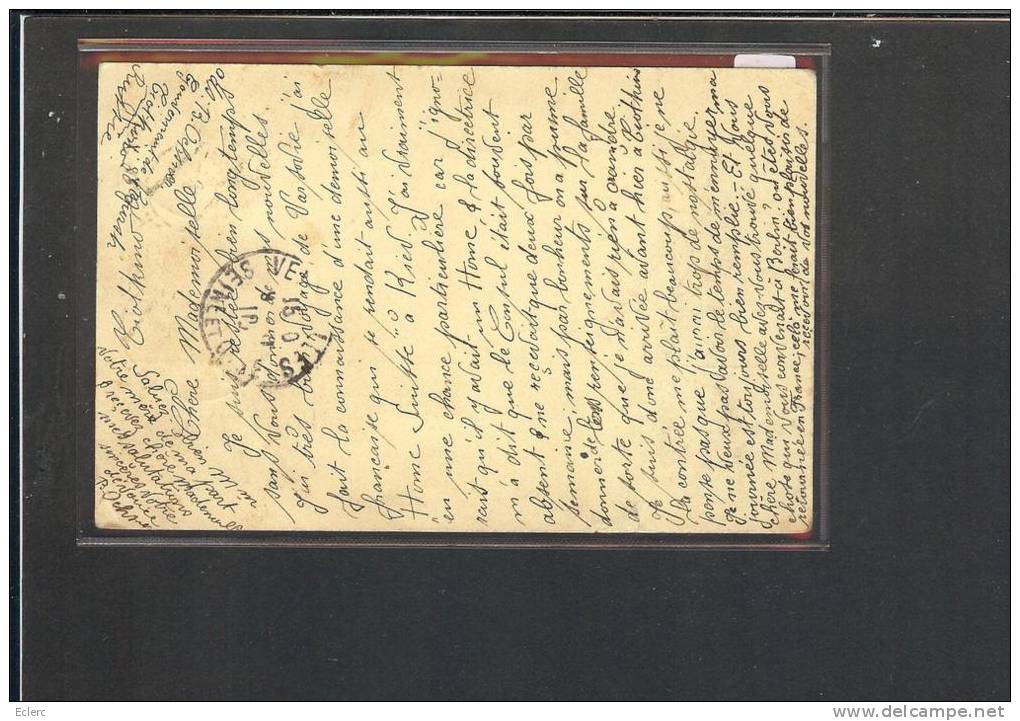 Chère Mademoiselle
Je suis restée bien longtemps
sans Vous donner de mes nouvelles
J'ai très bien voyagé de Varsovie j'ai
fait la connaissance d'une demoiselle
française qui se rendait aussi au
Home Suisse à Kiew. J'ai vraiment
eu une chance particulière car j'igno-
rais qu'il y avait un Home & la directrice
m'a dit que le Consul était souvent
absent & ne recevait que deux fois par
semaine, mais par bonheur on a pu me
donner de bons renseignements sur la famille
de sorte que je n'avais rien à craindre
Je suis donc arrivée avant hier à
La contrée me plaît beaucoup, aussi je ne
pense pas que j'aurai trop de nostalgie.
Je ne peux pas avoir le temps de m'ennuyer, ma
journée est toujours bien remplie. - Et Vous
chère Mademoiselle avez-vous trouvé quelque
chose qui Vous convenait à Berlin? ou êtes vous
retournée en France; cela me ferait bien plaisir de
recevoir de vos nouvelles.
Saluez
bien
Votre mère de ma part
& recevez chère Mademoiselle
mes salutations
sincères Votre
dévouée
Eclerc
delcampe.net